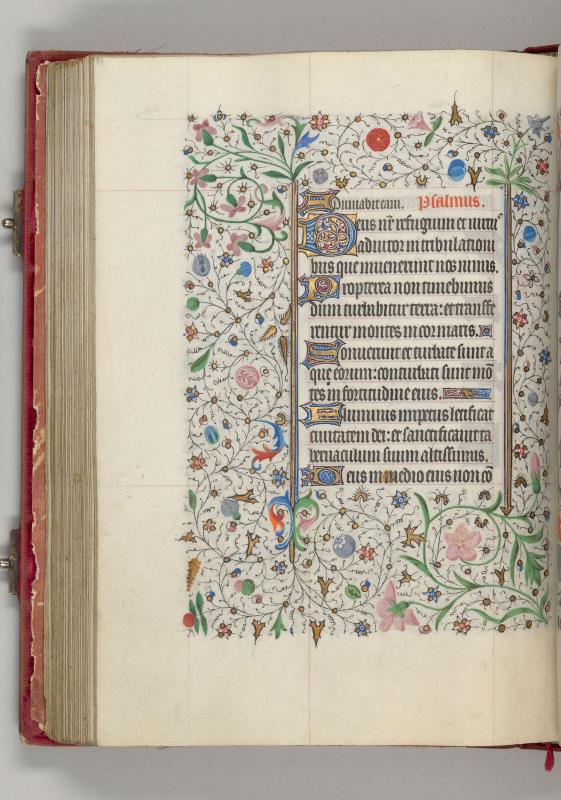 Diuiabit eam. Psalmus.
Deus nr̄ refugium et uirtus
adiutor in tribulationi
bus que inuenerunt nos nimis.
Propterea non timebimus
dum turbabitur terra: et transfe
rentur montes in cor maris.
Sonuerunt et turbate sunt a
que eorum: conturbati sunt mō
tes in fortitudine eius.
Fluminis impetus letificat
ciuitatem dei: et sanctificauit ta
bernaculum suum altissimus.
Deus in medio eius non cō